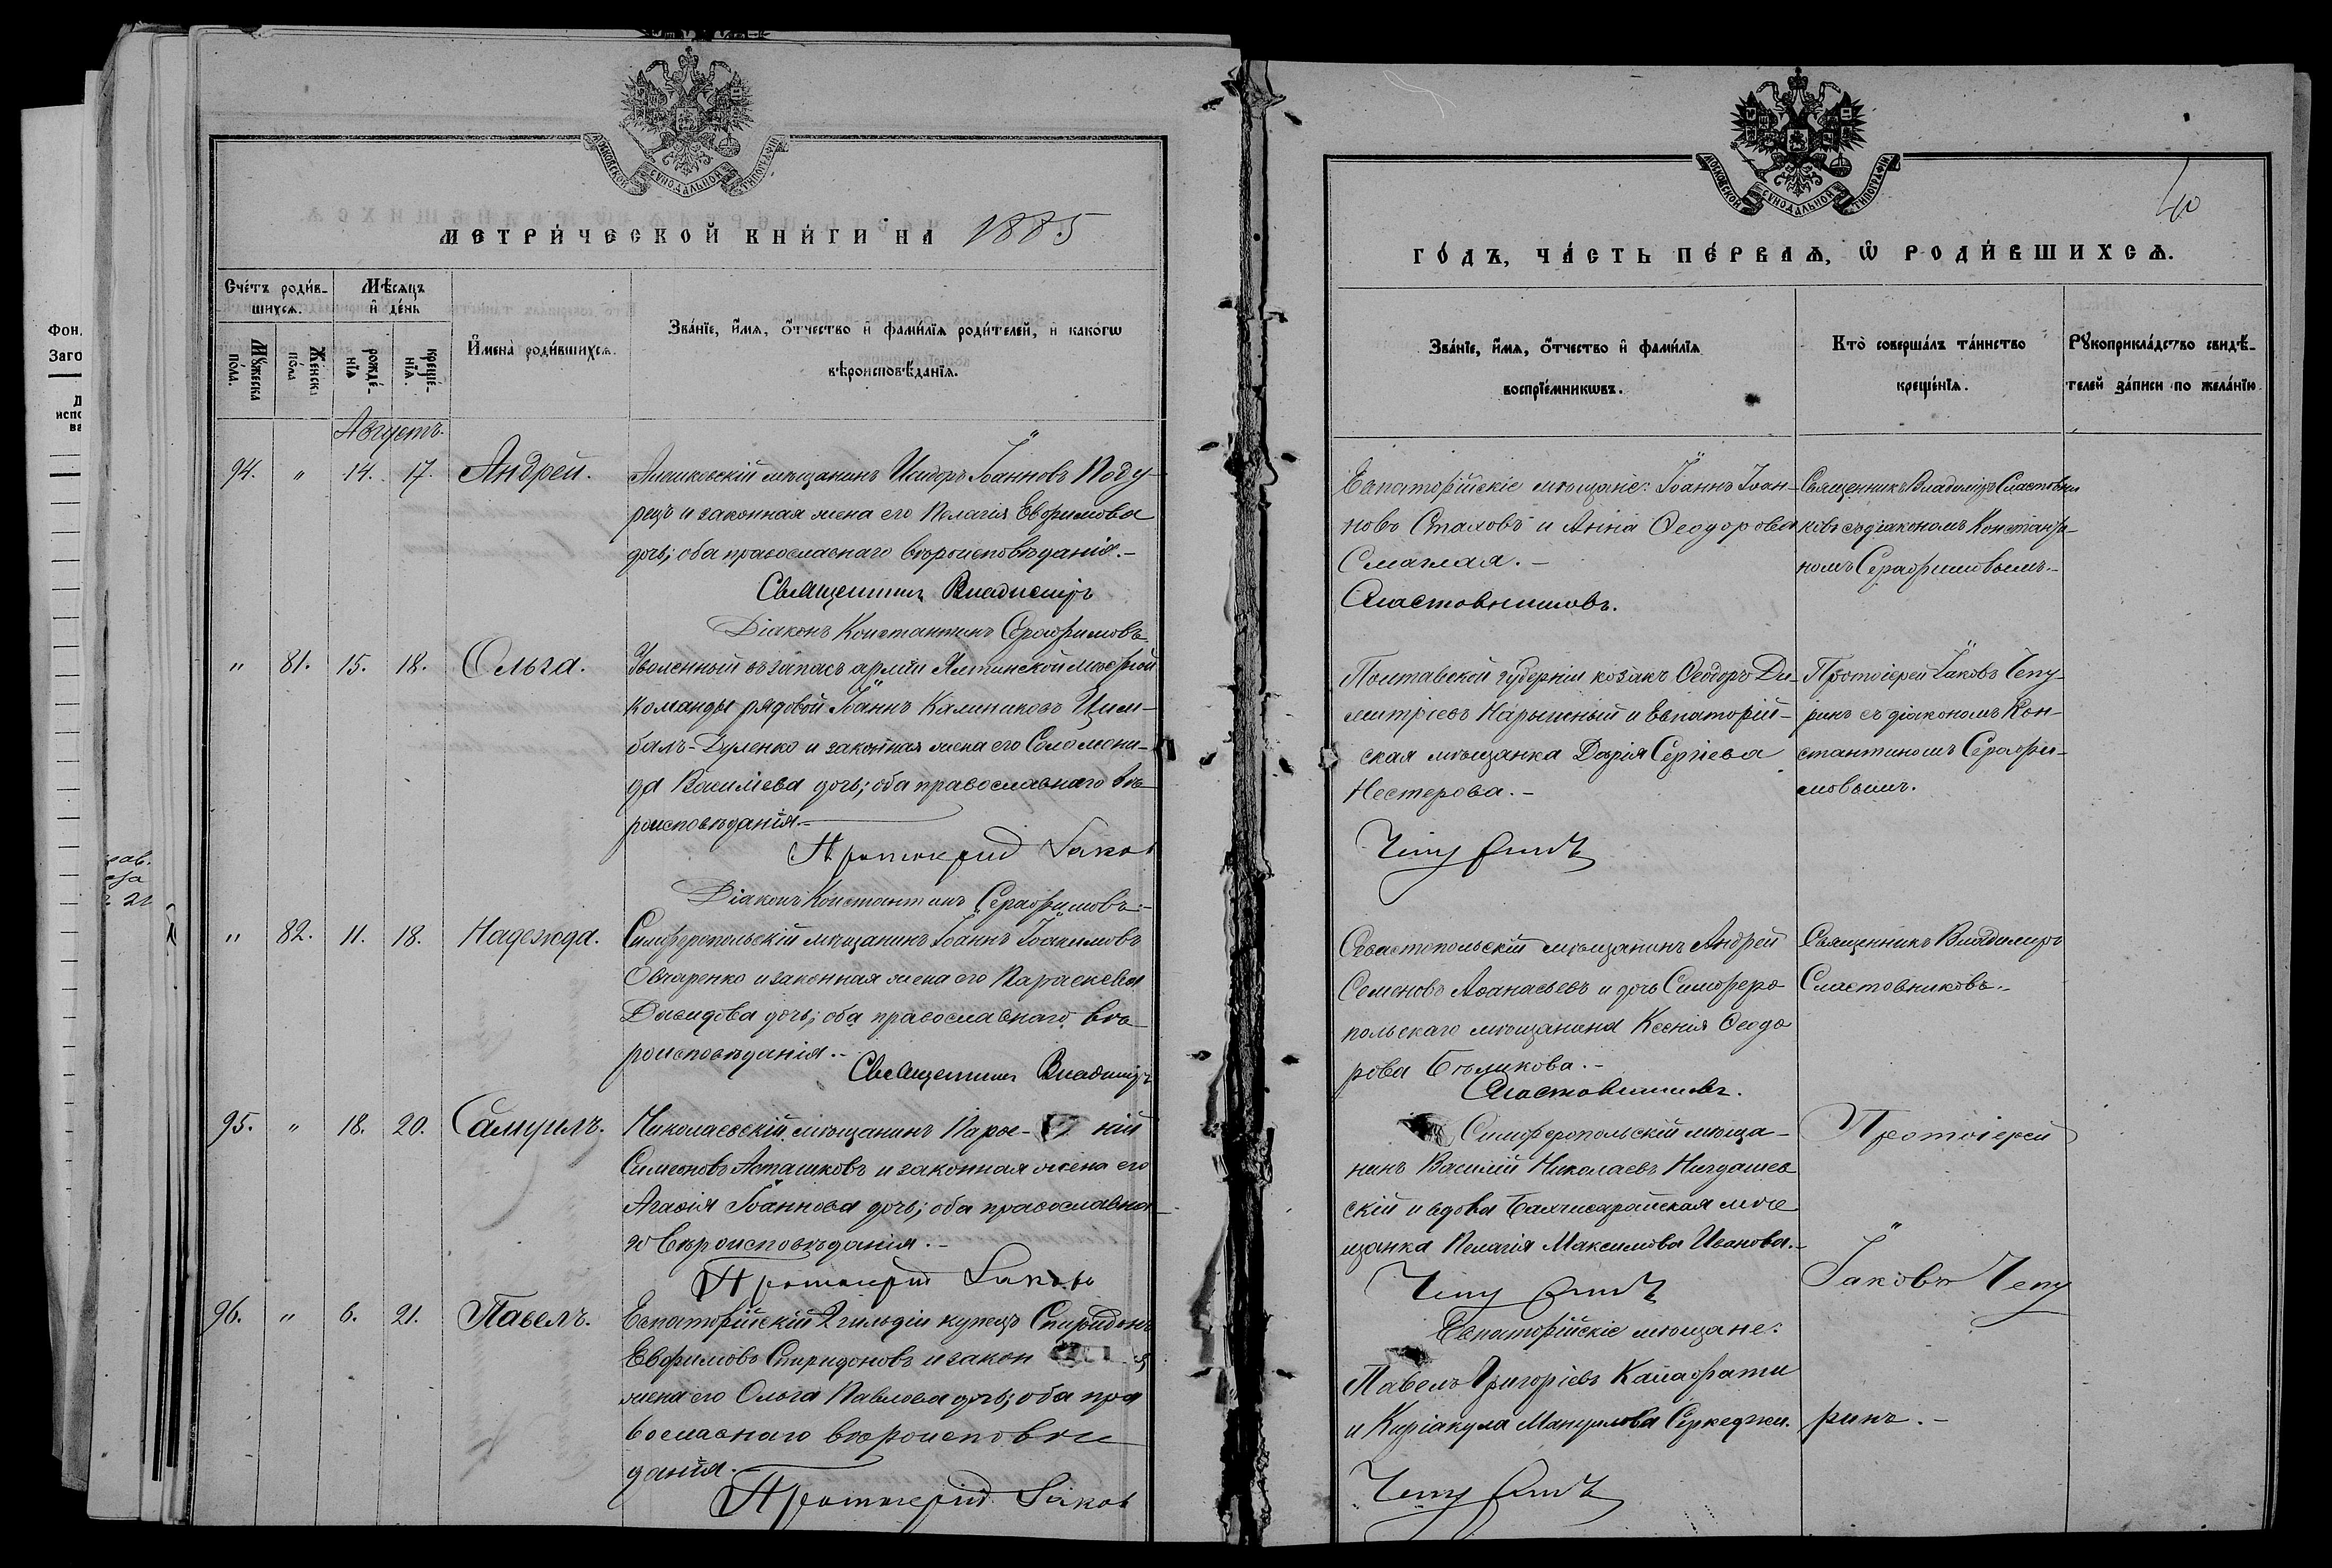 МОСКОВСКОЙ СѴНОДАЛЬНОЙ ТИПОГРАФІИ
МЕТРИ́ЧЕСКОЙ КНИ́ГИ НА 1885
Сче́тъ роди́в-
шихсѧ.
Мѣ́сѧцъ
и҆ де́нь
И҆мена̀ роди́вшихсѧ.
Зва́нїе, и҆́мѧ, ѻ҆́тчество и҆ фами́лїѧ роди́телей, и҆ како́гѡ
вѣроисповѣ́данїѧ.
Мꙋ́жеска
по́ла.
Же́нска
по́ла
рожде́-
нїѧ
креще́-
нїѧ.
Августъ.
94. " 14. 17. Андрей.
мѣщанинъ Исидоръ Іоанновъ Поду-
рецъ и законная жена его Пелагія Евфимова
дочь; оба православнаго вѣроисповѣданія.-
Священникъ Владиміръ
Діаконъ Константинъ Серафимовъ.
" 81. 15. 18. Ольга.
Уволенный въ запасъ арміи Ялтинской мѣстной
команды рядовой Іоаннъ Калиниковъ Цим-
балъ-Дуленко и законная жена его Соломони-
да Васильева дочь; оба православнаго вѣ-
роисповѣданія.-
Протоіерей Іаковъ
Діаконъ Константинъ Серафимовъ.-
" 82. 11. 18. Надежда.
Симферопольскій мѣщанинъ Іоаннъ Іоакимовъ
Овчаренко и законная жена его Параскева
Давидова дочь; оба православнаго вѣ-
роисповѣданія.-
Священникъ Владиміръ
95. " 18. 20. Самуилъ.
Николаевскій мѣщанинъ кій
Симеоновъ Асташковъ и законная жена его
Агафія Іоаннова дочь; оба православна-
го вѣроисповѣданія.-
Протоіерей Іаковъ
96. " 6. 21. Павелъ.
Евпаторійскій 2 гильдіи купецъ Спиридонъ
Евфимовъ Спиридоновъ и закон
жена его Ольга Павлова дочь; оба пра
вославнаго вѣроисповѣ
данія.-
Протоіерей Іаковъ
МОСКОВСКОЙ СѴНОДАЛЬНОЙ ТИПОГРАФІИ
40
ГО́ДЪ, ЧА́СТЬ ПЕ́РВАѦ, Ѽ РОДИ́ВШИХСѦ.
Зва́нїе, и҆́мѧ, ѻ҆́тчество и҆ фами́лїѧ
воспрїе́мникѡвъ.
Кто̀ соверша́лъ та́инство
креще́нїѧ.
Рꙋкоприкла́дство свидѣ́-
телей за́писи по жела́нїю.
Евпаторійскіе мѣщане: Іоаннъ Іоан-
новъ Стаховъ и Анна Ѳеодорова
Смаглая.-
Сластовниковъ.
Священникъ Владиміръ Сластовни
ковъ съ діакономъ Константи-
номъ Серафимовымъ.-
Полтавской губерніи козакъ Ѳеодоръ Ди-
митріевъ Нарыжный и Евпаторій-
ская мѣщанка Дарія Сергіева
Нестерова.-
Чепуринъ
Протоіерей Іаковъ Чепу-
ринъ съ діакономъ Кон-
стантиномъ Серафи-
мовымъ.
Севастопольскій мѣщанинъ Андрей
Семеновъ Аѳанасьевъ и дочь Симферо
польскаго мѣщанина Ксенія Ѳеодо
рова Бѣликова.-
Сластовниковъ.
Священникъ Владиміръ
Сластовниковъ.-
Симферопольскій мѣща-
нинъ Василій Николаевъ
скій и вдова Бахчисарайская мѣ
щанка Пелагія Максимова Иванова.-
Чепуринъ
Протоіерей
Іаковъ Чепу
Евпаторійскіе мѣщане:
Павелъ Григоріевъ Калафати
и Киріакула Мануилова Серкеджи.
ринъ.-
Чепуринъ